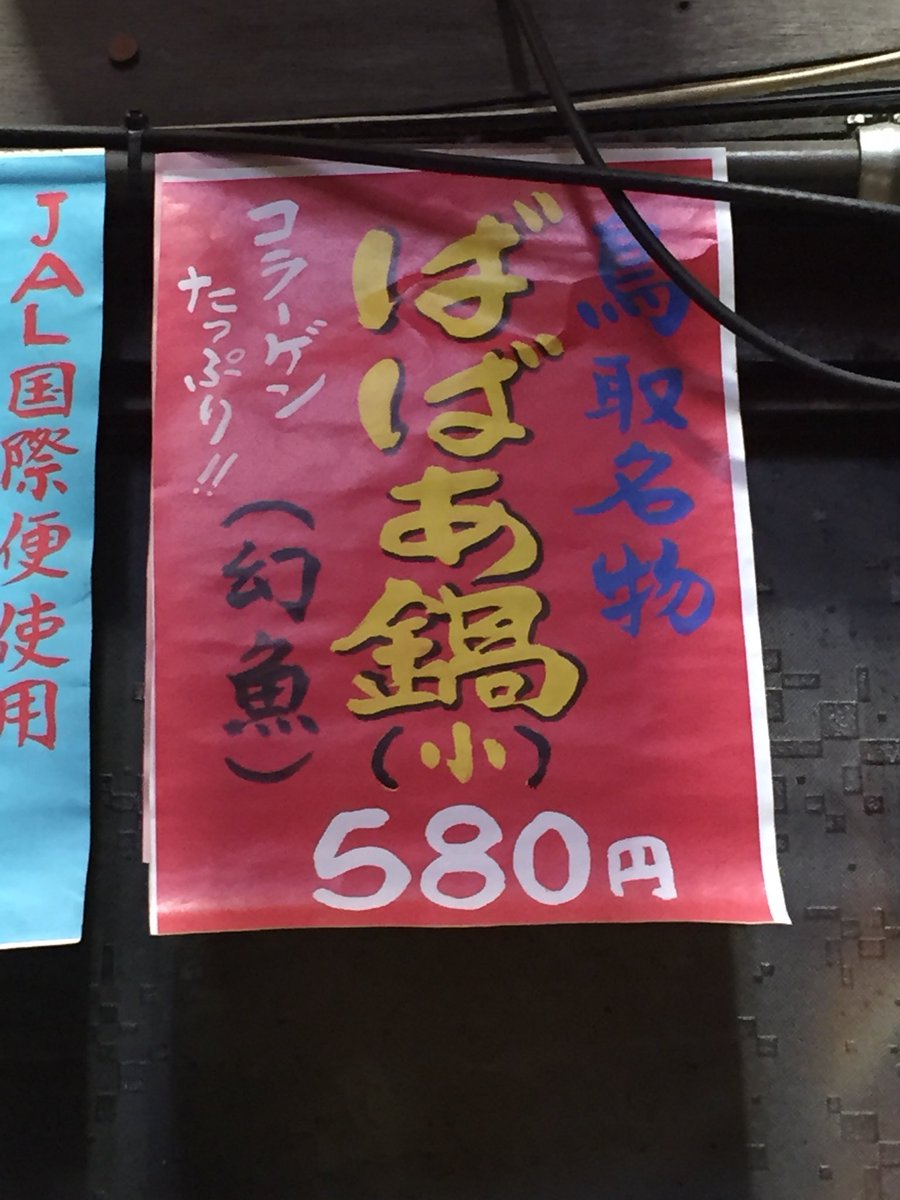 鳥取名物
ばばあ鍋(小)
コラーゲン
たっぷり!!
(幻魚)
580円
JAL国際便使用